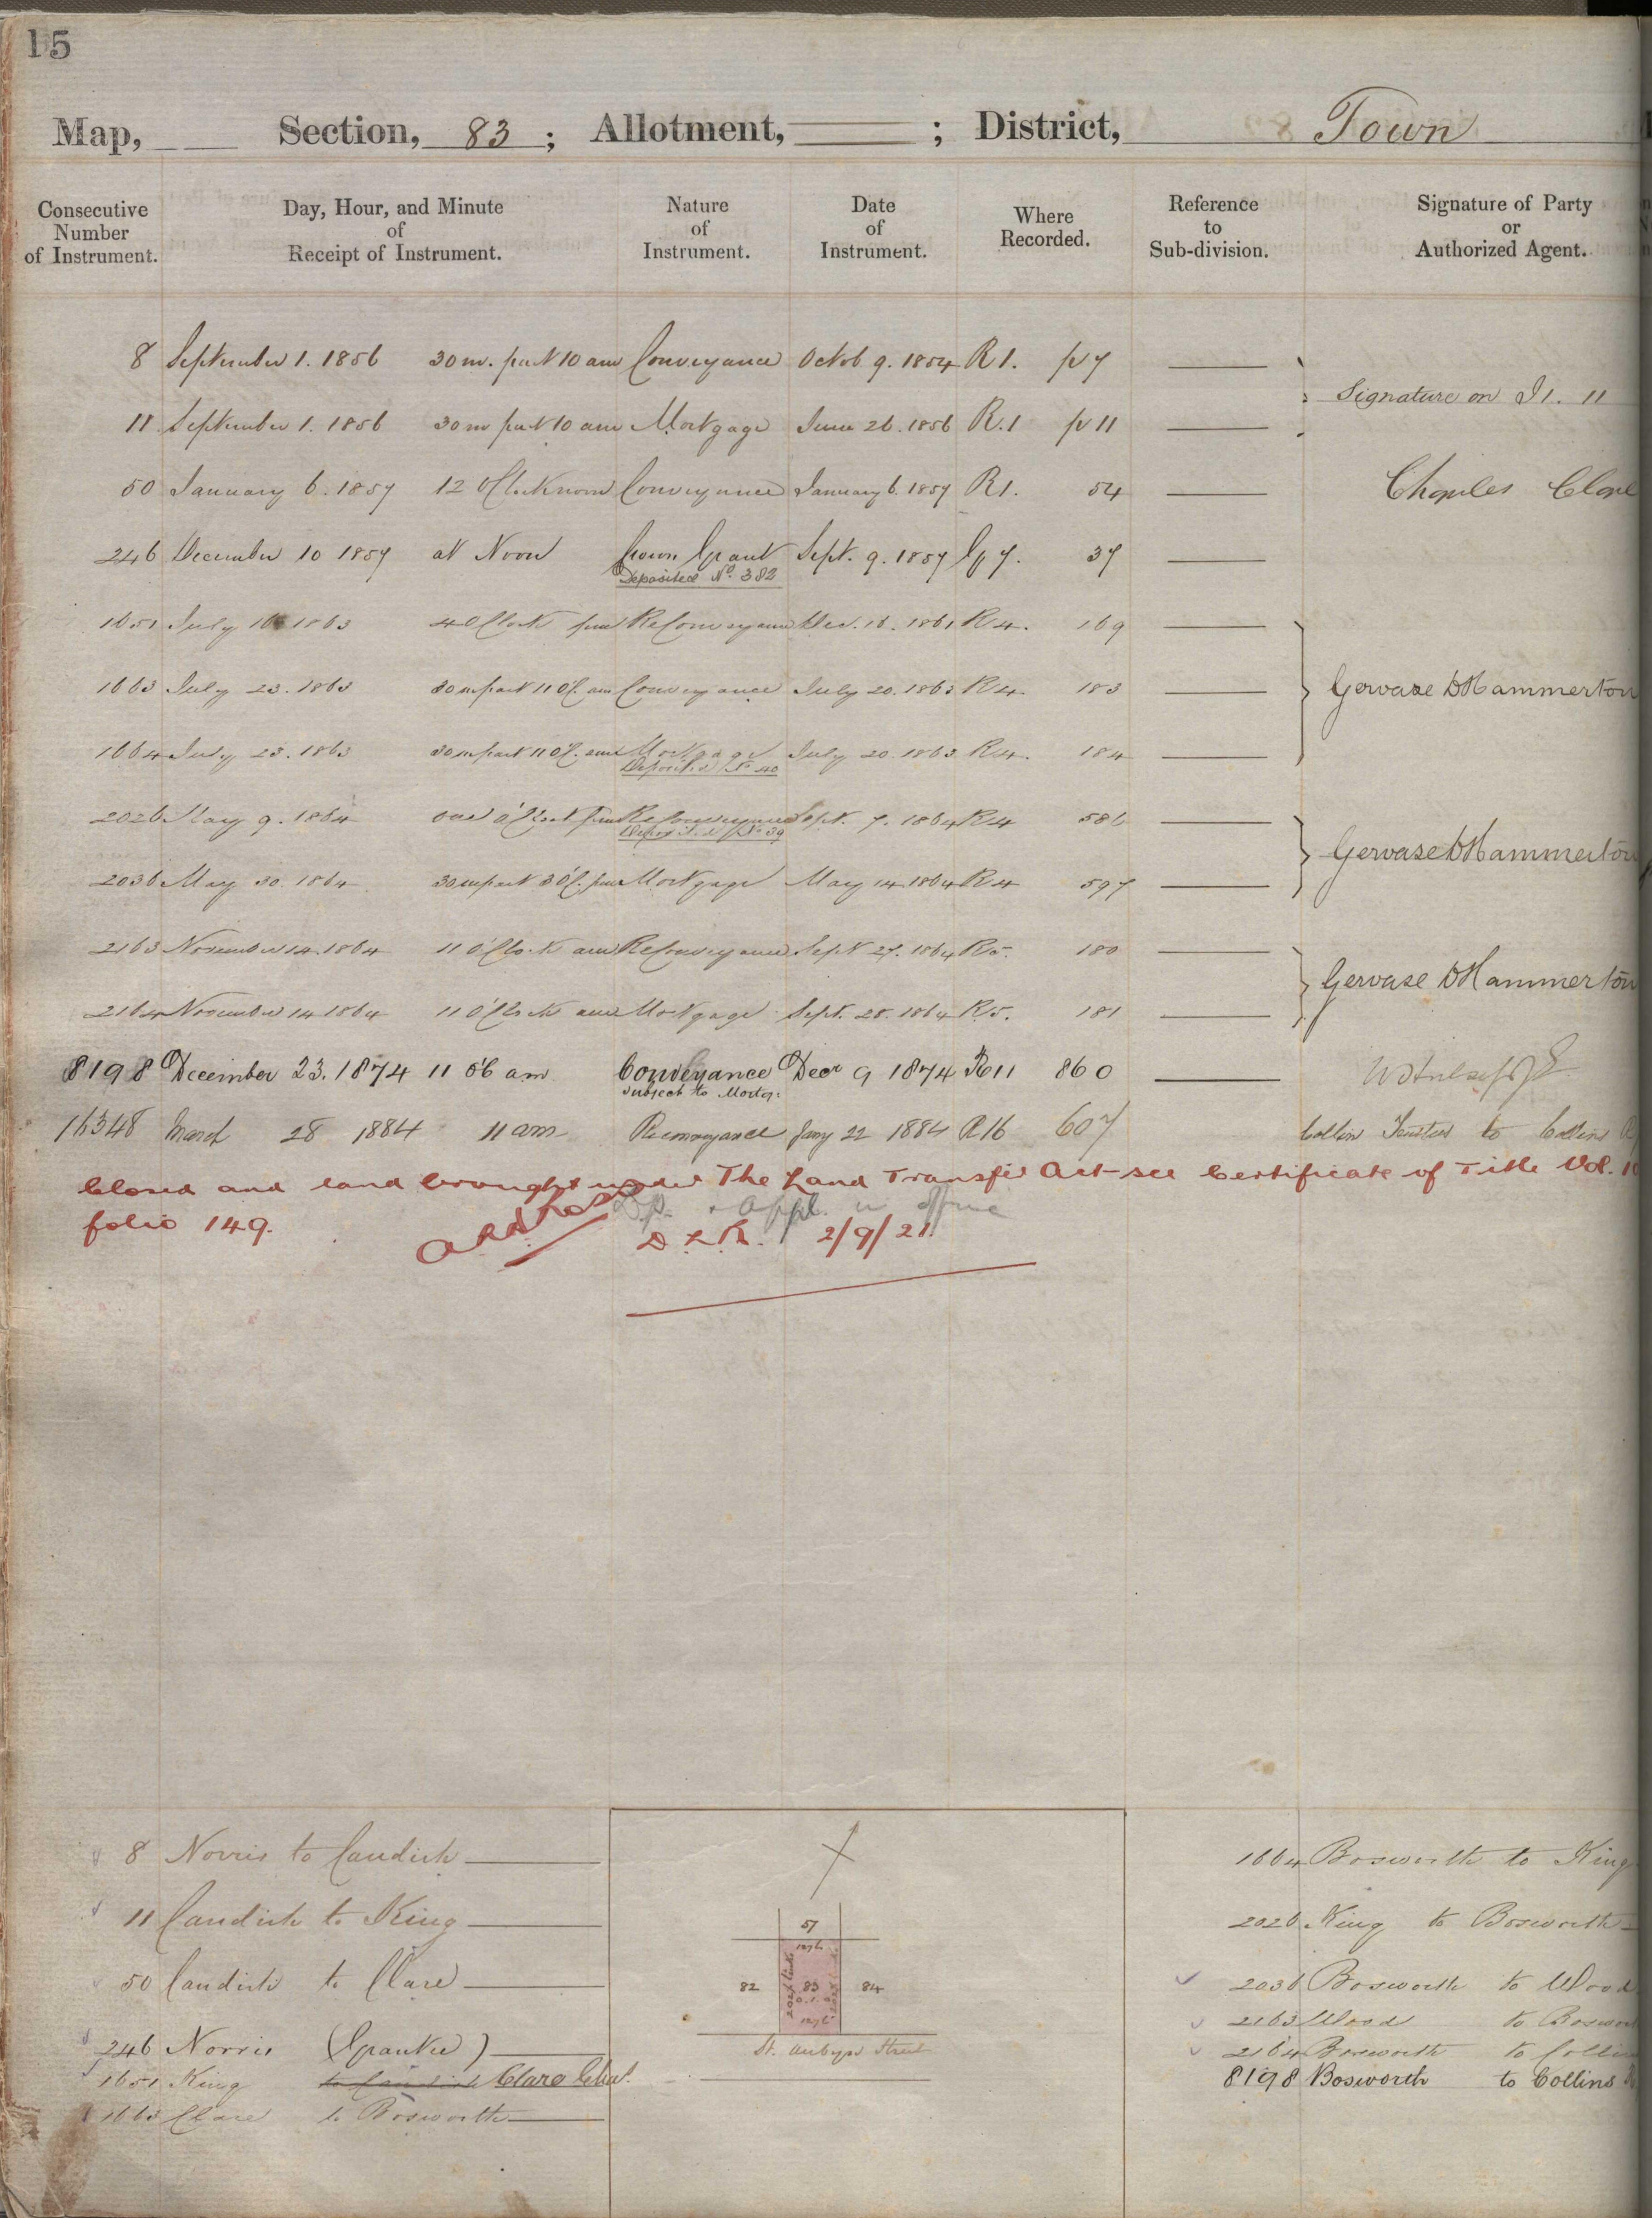 15
Map, Section, 83 ; Allotment, ; District, Town
Consecutive Number of Instrument. Day, Hour, and Minute of Receipt of Instrument. Nature of Instrument. Date of Instrument. Where Recorded. Reference to Sub-division. Signature of Party or Authorized Agent.
8 September 1. 1856 30 m. past 10 am Conveyance Octob 9. 1854 R 1. p 7
Signature on I 1. 11
11 September 1. 1856 30 m past 10 am Mortgage June 26. 1856 R. 1 p 11
50 January 6. 1857 12 O'Clock noon Conveyance January 6. 1857 R 1. 54 Charles Clare
246 December 10 1857 at Noon Crown Grant Sept. 9. 1857 G 7. 37
Deposited No. 382
1651 July 16 1863 4 O'Clock pm ReConveyance Dec. 18. 1861 R 4. 169
1663 July 23. 1863 30 m past 11 O'C. am Conveyance July 20. 1863 R 4. 183 Gervase D Hammerton
1664 July 23. 1863 30 m past 11 O'C. am Mortgage July 20. 1863 R 4. 184
Deposited No 40
2026 May 9. 1864 one O'Clock pm Reconveyance Sept. 7. 1864 R 4 586
Deposited No 39
Gervase D Hammerton
2036 May 30. 1864 30 m past 3 O'C. pm Mortgage May 14. 1864 R 4 597
2163 November 14. 1864 11 O'Clock am ReConveyance Sept 27. 1864 R 5. 180
Gervase D Hammerton
2164 November 14 1864 11 O'Clock am Mortgage Sept. 28. 1864 R 5. 181
8198 December 23. 1874 11 O'C am Conveyance Decr 9 1874 R 11 860
subject to Mortg:
16348 March 28 1884 11 am Reconveyance Jany 22 1884 R 16 607 Collins Trustees to Collins
Closed and land brought under The Land Transfer Act - see Certificate of Title Vol.
folio 149. appl. in office
D. L. R. 2/9/21.
8 Norris to Candish
11 Candish to King
50 Candish to Clare
246 Norris (Grantee)
1651 King to Candish Clare Chas.
1663 Clare to Bosworth
57
82 83 84
St. Aubyn Street
1664 Bosworth to King
2026 King to Bosworth
2036 Bosworth to Wood
2163 Wood to Boswor
2164 Bosworth to Collin
8198 Bosworth to Collins